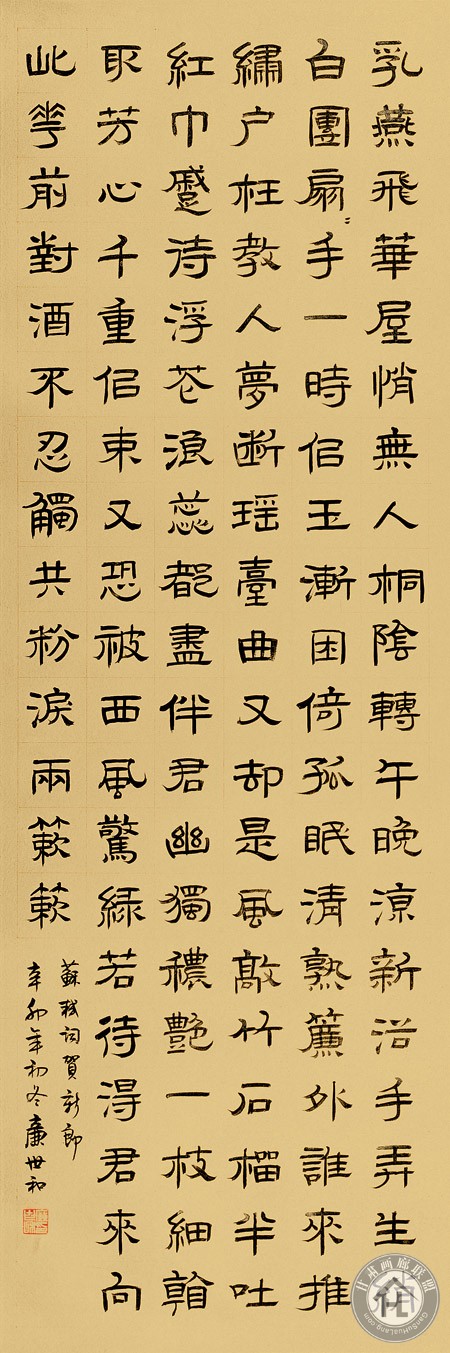 乳燕飛華屋悄無人桐陰轉午晚涼新浴手弄生綃
白團扇〻手一時侣玉漸困倚孤眠清熟簾外誰來推
繡户枉教人夢斷瑶臺曲又却是風敲竹石榴半吐
紅巾蹙待浮花浪蕊都盡伴君幽獨穠艷一枝細看
取芳心千重侣束又恐被西風驚綠若待得君來向
此花前對酒不忍觸共粉淚兩簌簌
蘇軾詞賀新郎
辛卯年初冬廉世和
甘肃画廊联盟
GanSuHuaLang.com